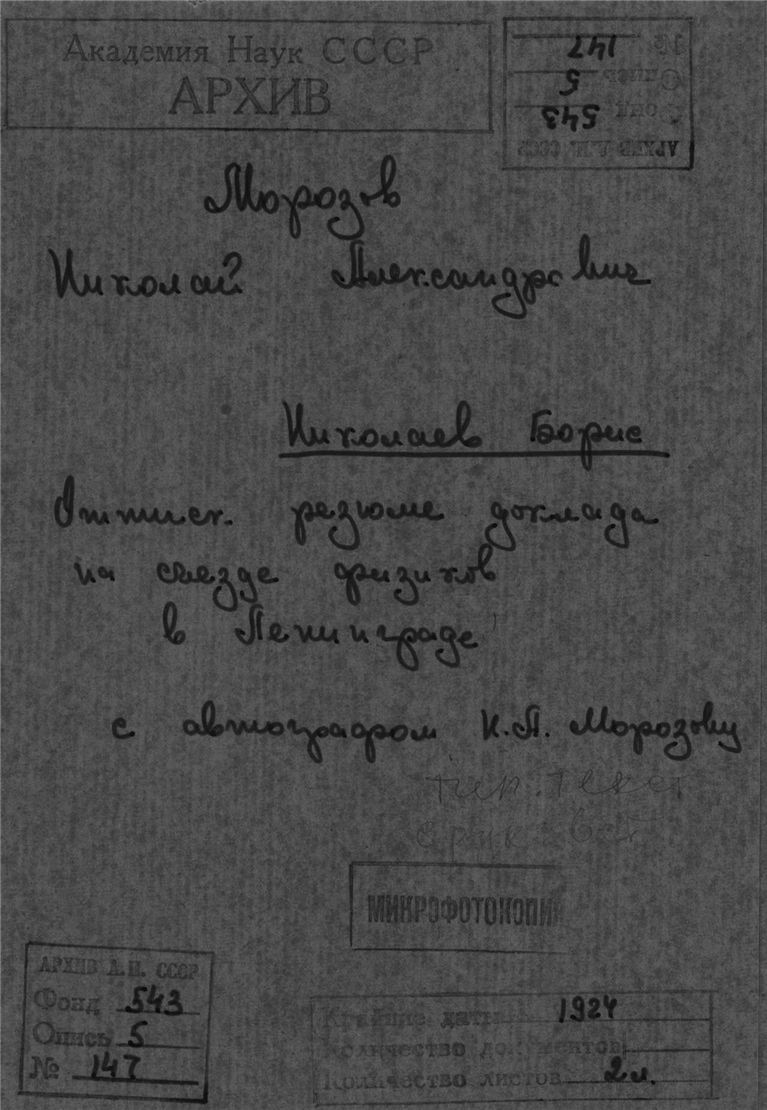 Академия Наук СССР
АРХИВ
АРХИВ А.Н. СССР
Фонд 543
Опись 5
№ 147
Морозов
Николай Александрович
Николаев Борис
Оттиск резюме доклада
на съезде физиков
в Ленинграде
с автографом Н.А. Морозову
тип. текст
МИКРОФОТОКОПИ
АРХИВ А.Н. СССР
Фонд 543
Опись 5
№ 147
Крайние даты 1924
Количество документов
Количество листов 2 л.